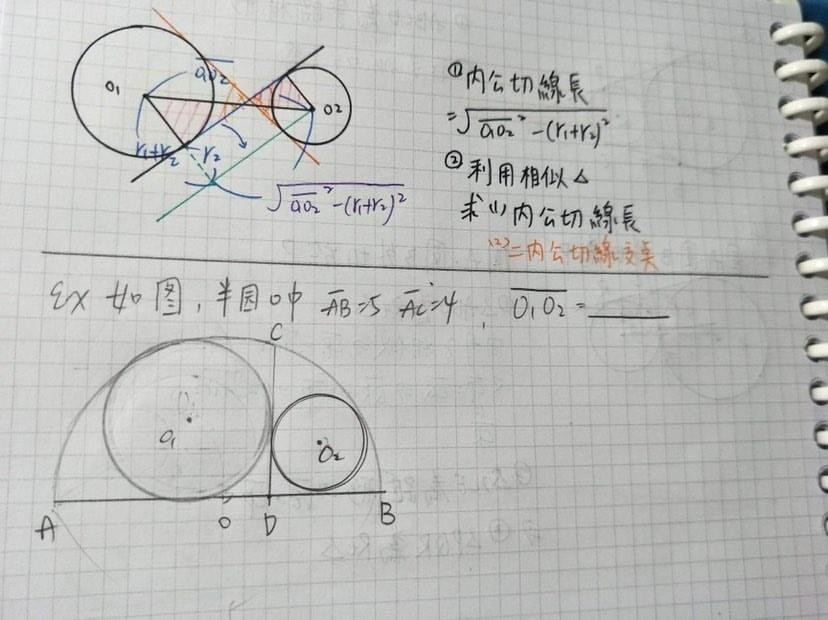 O₁
O₁O₂
O₂
r₁+r₂
r₂
√(O₁O₂² -(r₁+r₂)²)
①內公切線長
=√(O₁O₂² -(r₁+r₂)²)
②利用相似△
求(1)內公切線長
(2)二内公切線交臭
EX 如图,半园O中 AB=5 AC=4 , O₁O₂ = ______
C
O₁
O₂
A
O
D
B